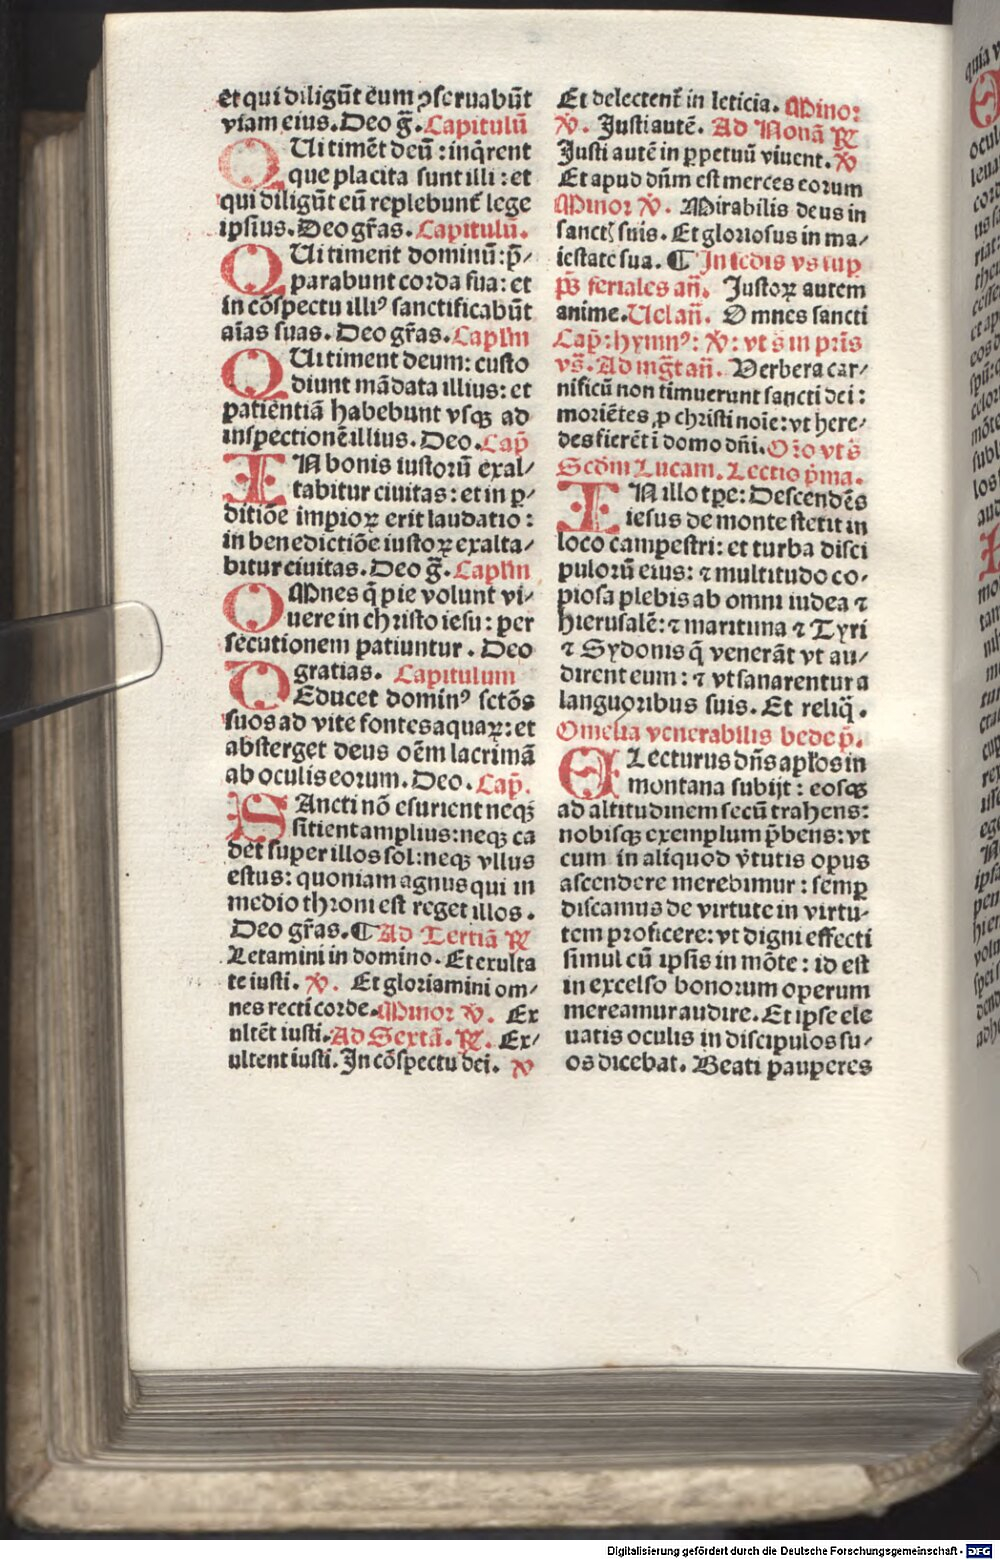 et qui diligūt eum ꝯseruabūt
viam eius. Deo g̃. Capitulū
QUi timēt deū: inq̃rent
que placita sunt illi: et
qui diligūt eū replebunt̃ lege
ipsius. Deo gr̃as. Capitulū.
QUi timent dominū: p̃⸗
parabunt corda sua: et
in cōspectu illiꝰ sanctificabūt
aīas suas. Deo gr̃as. Caplm̄
QUi timent deum: custo
diunt mādata illius: et
patiētiā habebunt vsqꝫ ad
inspectionē illius. Deo. Cap̃
IN bonis iustorū exal⸗
tabitur ciuitas: et in ꝑ⸗
ditiōe impioꝝ erit laudatio:
in benedictiōe iustoꝝ exalta⸗
bitur ciuitas. Deo g̃. Caplm̄
OMnes q̃ pie volunt vi⸗
uere in christo iesu: per
secutionem patiuntur. Deo
gratias. Capitulum
DEducet dominꝰ sctōs
suos ad vite fontes aquaꝝ: et
absterget deus oēm lacrimā
ab oculis eorum. Deo. Cap̃.
SAncti nō esurient neqꝫ
sitient amplius: neqꝫ ca
det super illos sol: neqꝫ vllus
estus: quoniam agnus qui in
medio throni est reget illos.
Deo gr̃as. ¶ Ad Tertiā ℟
Letamini in domino. Et exulta
te iusti. ℣. Et gloriamini om⸗
nes recti corde. Minor ℣. Ex
ultēt iusti. Ad Sextā. ℟. Ex⸗
ultent iusti. In cōspectu dei. ℣
Et delectent̃ in leticia. Minor
℣. Justi autē. Ad Nonā ℟
Justi autē in ꝑpetuū viuent. ℣
Et apud dn̄m est merces eorum
Minor ℣. Mirabilis deus in
sanctꝭ suis. Et gloriosus in ma⸗
iestate sua. ¶ In sc̄dis vs̄ sup
ps̄ feriales an̄. Justoꝝ autem
anime. Uel an̄. Omnes sancti
Cap̃: hymnꝰ: ℣: vt s̄ in prīs
vs̄. Ad mg̃t an̄. Verbera car⸗
nificū non timuerunt sancti dei:
moriētes ꝓ christi noīe: vt here⸗
des fierēt ī domo dn̄i. Or̄o vt s̄
Scd̄m Lucam. Lectio p̄ma.
IN illo tp̄e: Descendēs
iesus de monte stetit in
loco campestri: et turba disci
pulorū eius: ⁊ multitudo co⸗
piosa plebis ab omni iudea ⁊
hierusalē: ⁊ maritima ⁊ Tyri
⁊ Sydonis q̃ venerāt vt au⸗
dirent eum: ⁊ vt sanarentur a
languoribus suis. Et reliq̃.
Omelia venerabilis bede p̄.
ELecturus dn̄s aplos in
montana subijt: eosqꝫ
ad altitudinem secū trahens:
nobisqꝫ exemplum p̄bens: vt
cum in aliquod v̄tutis opus
ascendere merebimur: semꝑ
discamus de virtute in virtu⸗
tem proficere: vt digni effecti
simul cū ipsis in mōte: id est
in excelso bonorum operum
mereamur audire. Et ipse ele
uatis oculis in discipulos su⸗
os dicebat. Beati pauperes
Digitalisierung gefördert durch die Deutsche Forschungsgemeinschaft - DFG